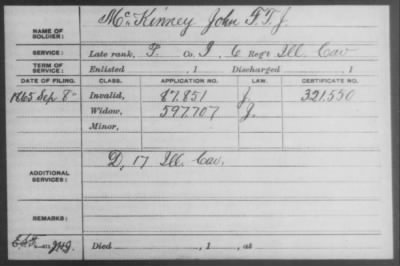 NAME OF SOLDIER: McKinney John F. T. J.
SERVICE: Late rank, F. Co. I, 6 Reg't Ill. Cav
TERM OF SERVICE: Enlisted , 1 Discharged , 1
DATE OF FILING. CLASS. APPLICATION NO. LAW. CERTIFICATE NO.
1865 Sep 8 Invalid, 87.851 J. 321.550
Widow, 597.707 J.
Minor,
ADDITIONAL SERVICES: D, 17 Ill. Cav.
REMARKS:
Died , 1 , at